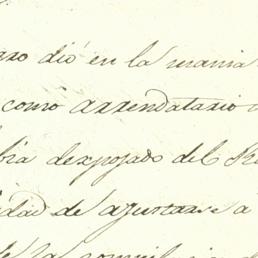 dió en la mania
como arrendatario
bia despojado del
idad de ajustarse a
de la